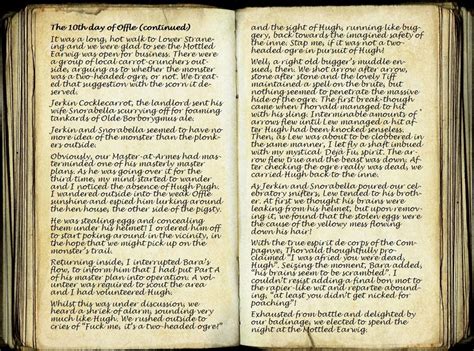 The 10th day of Offle (continued)
It was a long, hot walk to Lower Strane-
ing and we were glad to see the Mottled
Earwig was open for business. There were
a group of local carrot-crunchers out-
side, arguing as to whether the monster
was a two-headed ogre, or not. We treat-
ed that suggestion with the scorn it de-
served.
Jerkin Cocklecarrot, the landlord sent his
wife Snorabella scurrying off for foaming
tankards of Olde Borborygmus ale.
Jerkin and Snorabella seemed to have no
more idea of the monster than the plonk-
ers outside.
Obviously, our Master-at-Arms had mas-
terminded one of his masterly master
plans. As he was going over it for the
third time, my mind started to wander
and I noticed the absence of Hugh-Pugh.
I wandered outside into the weak Offle
sunshine and espied him lurking around
the hen house, the other side of the pigsty.
He was stealing eggs and concealing
them under his helmet! I ordered him off
to start poking around in the vicinity, in
the hope that we might pick up on the
monster's trail.
Returning inside, I interrupted Bara's
flow, to inform him that I had put Part A
of his master plan into operation. A vol-
unteer was required to scout the area
and I had volunteered Hugh.
Whilst this was under discussion, we
heard a shriek of alarm, sounding very
much like Hugh. We rushed outside to
cries of "Fuck me, it's a two-headed ogre!"
and the sight of Hugh, running like bug-
gery, back towards the imagined safety of
the inne. Stap me, if it was not a two-
headed ogre in pursuit of Hugh!
Well, a right old bugger's muddle en-
sued, then. We shot arrow after arrow,
stone after stone and the lovely Tiff
maintained a spell on the brute, but
nothing seemed to penetrate the massive
hide of the ogre. The first break-though
came when Thorvald managed to hit
with his sling. Interminable amounts of
arrows flew until Lew managed a hit af-
ter Hugh had been knocked senseless.
Then, as Lew was about to be clobbered in
the same manner, I let fly a shaft imbued
with my mystical Deja Fu spirit. The ar-
row flew true and the beast was down. Af-
ter checking the ogre really was dead, we
carried Hugh back to the inne.
As Jerkin and Snorabella poured our cel-
ebratory snifters, Lew tended to his broth-
er. At first we thought his brains were
leaking from his helmet, but upon remov-
ing it, we found that the stolen eggs were
the cause of the yellowy mess flowing
down his hair!
With the true spirit de corps of the Com-
pagnye, Thorvald thoughtfully pro-
claimed "I was afried you were dead,
Hugh". Seizing the moment, Bara added,
"his brains seem to be scrambled". I
couldn't resist adding a final bon mot to
the rapier-like wit and repartee abound-
ing, "at least you didn't get nicked for
poaching"!
Exhausted from battle and delighted by
our badinage, we elected to spend the
night at the Mottled Earwig.